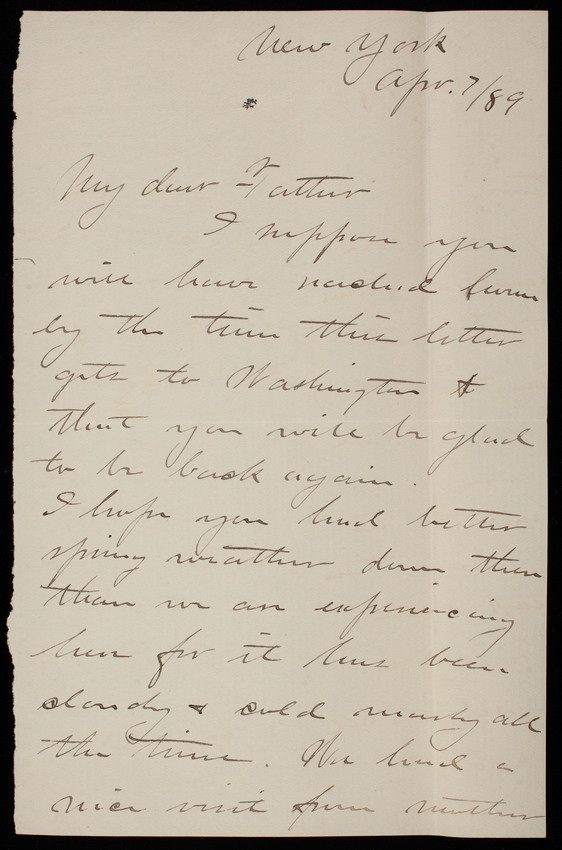 New York
Apr. 7/89
My dear Father
I suppose you
will have reached home
by the time this letter
gets to Washington &
that you will be glad
to be back again.
I hope you had better
spring weather down there
than we are experiencing
here for it has been
cloudy & cold nearly all
the time. We had a
nice visit from mother